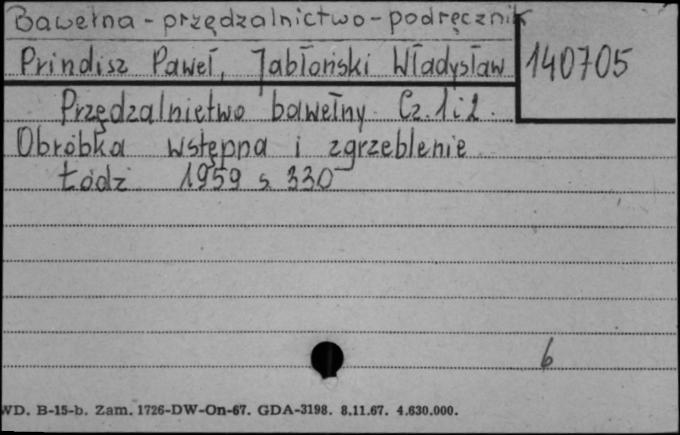 Bawełna - przędzalnictwo - podręcznik
Prindisz Paweł, Jabłoński Władysław
140705
Przędzalnictwo bawełny Cz. 1 i 2.
Obróbka wstępna i zgrzeblenie
Łódź 1959 s. 330
6
WD. B-15-b. Zam. 1726-DW-On-67. GDA-3198. 8.11.67. 4.630.000.